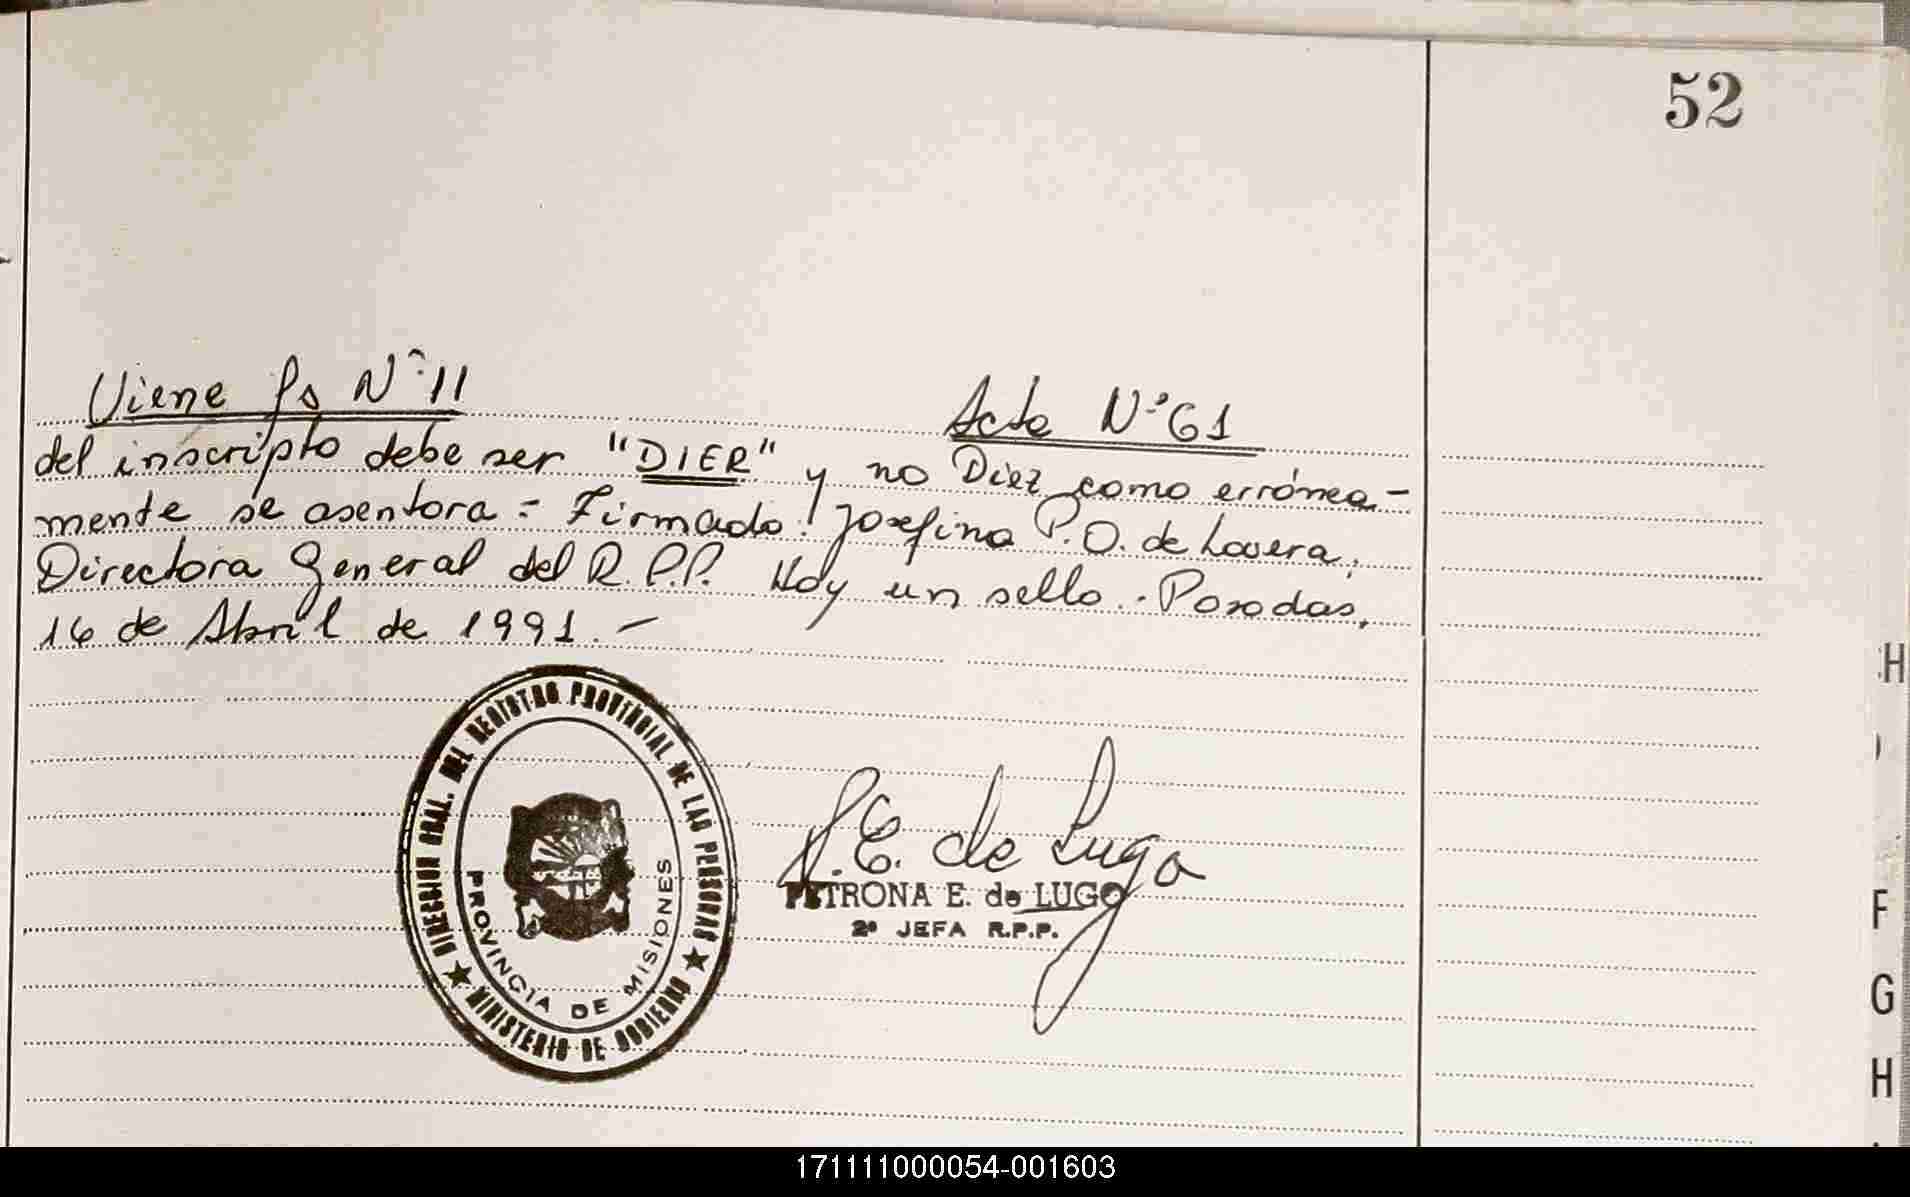 52
Viene fs Nº 11
Acta Nº 61
del inscripto debe ser "DIER" y no Diez como errónea-
mente se asentora = Firmado: Josefina P. O. de Lovera,
Directora General del R.P.P. Hoy un sello.- Posadas,
16 de Abril de 1991.-
DIRECCION GRAL. DEL REGISTRO PROVINCIAL DE LAS PERSONAS
PROVINCIA DE MISIONES
MINISTERIO DE GOBIERNO
P.E. de Lugo
PETRONA E. de LUGO
2º JEFA R.P.P.
H
F
G
H
171111000054-001603